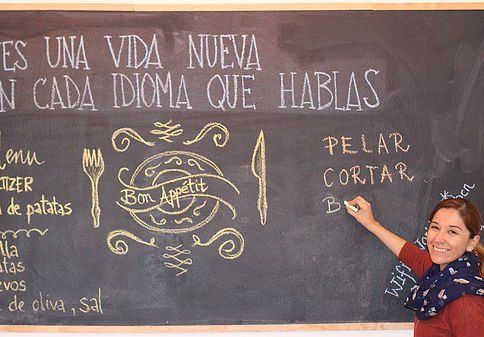 ES UNA VIDA NUEVA
N CADA IDIOMA QUE HABLAS
enu
TIZER
de patatas
lla
tas
evos
de oliva, sal
Bon Appétit
PELAR
CORTAR
B
Wifi